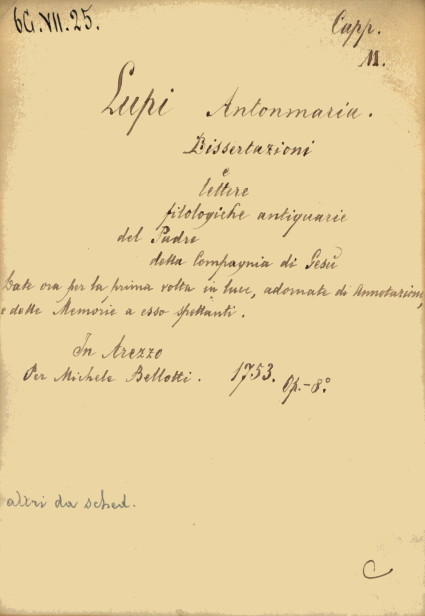 6G.VII.25.
Capp.
M.
Lupi Antonmaria.
Dissertazioni
e
lettere
filologiche antiquarie
del Padre
della Compagnia di Gesù
Date ora per la prima volta in luce, adornate di Annotazione,
e delle Memorie a esso spettanti.
In Arezzo
Per Michele Bellotti. 1753. Op.-8°
altri da sched.
C